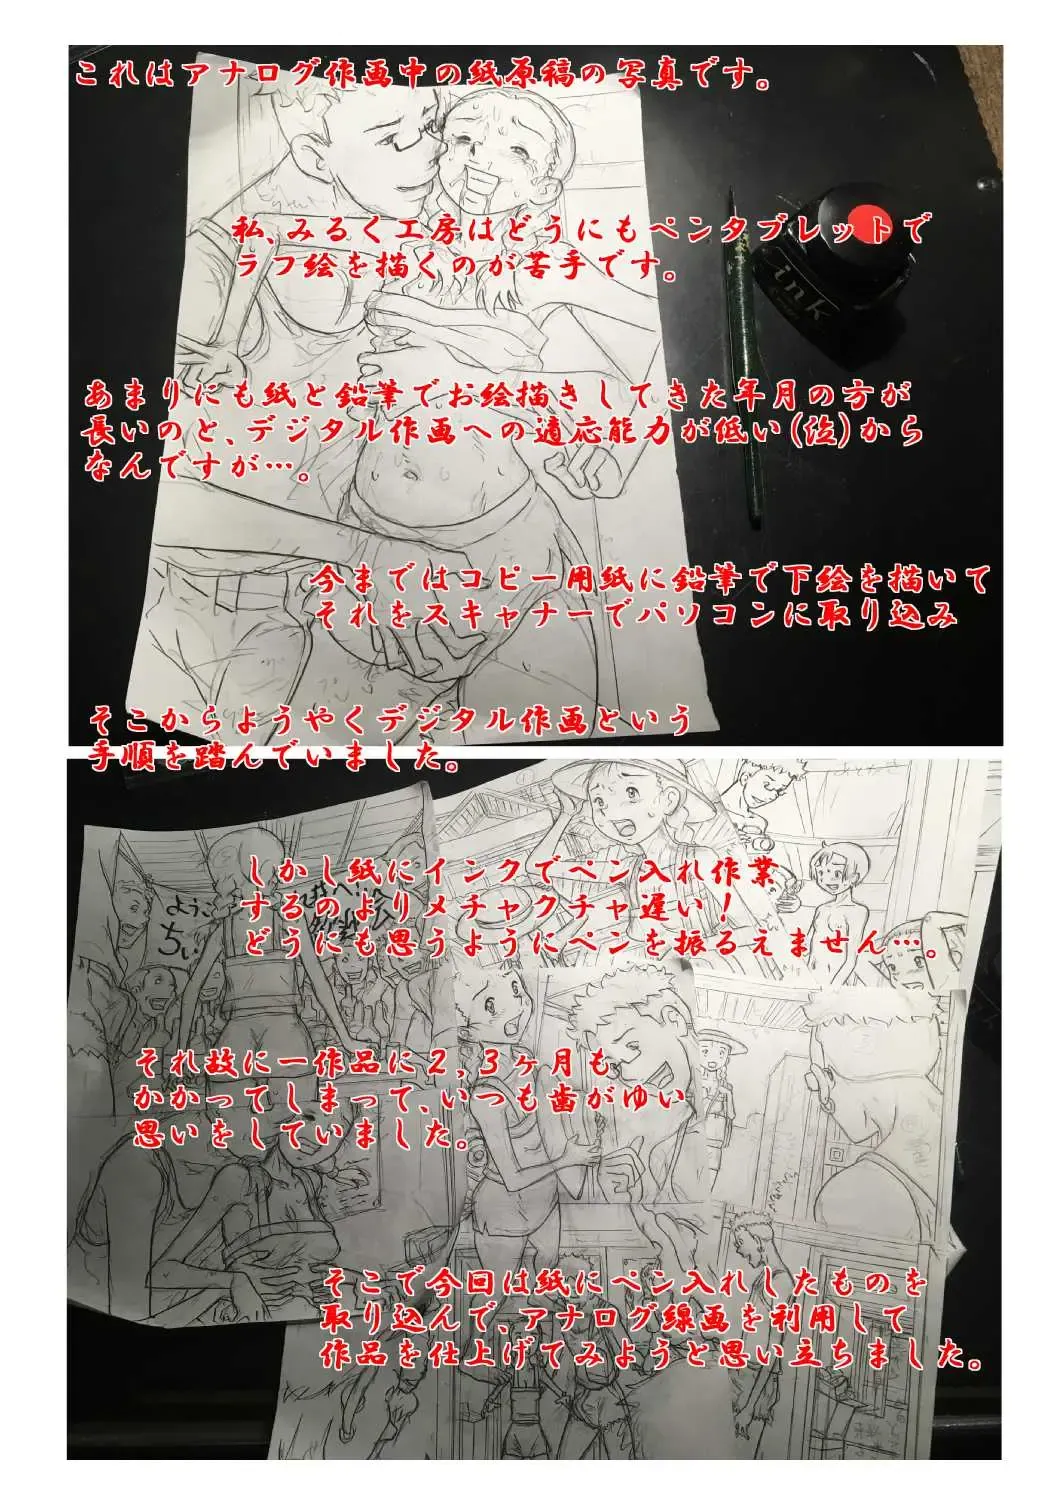 これはアナログ作画中の紙原稿の写真です。
ink
私、みるく工房はどうにもペンタブレットで
ラフ絵を描くのが苦手です。
あまりにも紙と鉛筆でお絵描きしてきた年月の方が
長いのと、デジタル作画への適応能力が低い(泣)から
なんですが…。
今まではコピー用紙に鉛筆で下絵を描いて
それをスキャナーでパソコンに取り込み
そこからようやくデジタル作画という
手順を踏んでいました。
しかし紙にインクでペン入れ作業
するのよりメチャクチャ遅い！
どうにも思うようにペンを振るえません…。
ようこ
それ故に一作品に2,3ヶ月も
かかってしまって、いつも歯がゆい
思いをしていました。
そこで今回は紙にペン入れしたものを
取り込んで、アナログ線画を利用して
作品を仕上げてみようと思い立ちました。